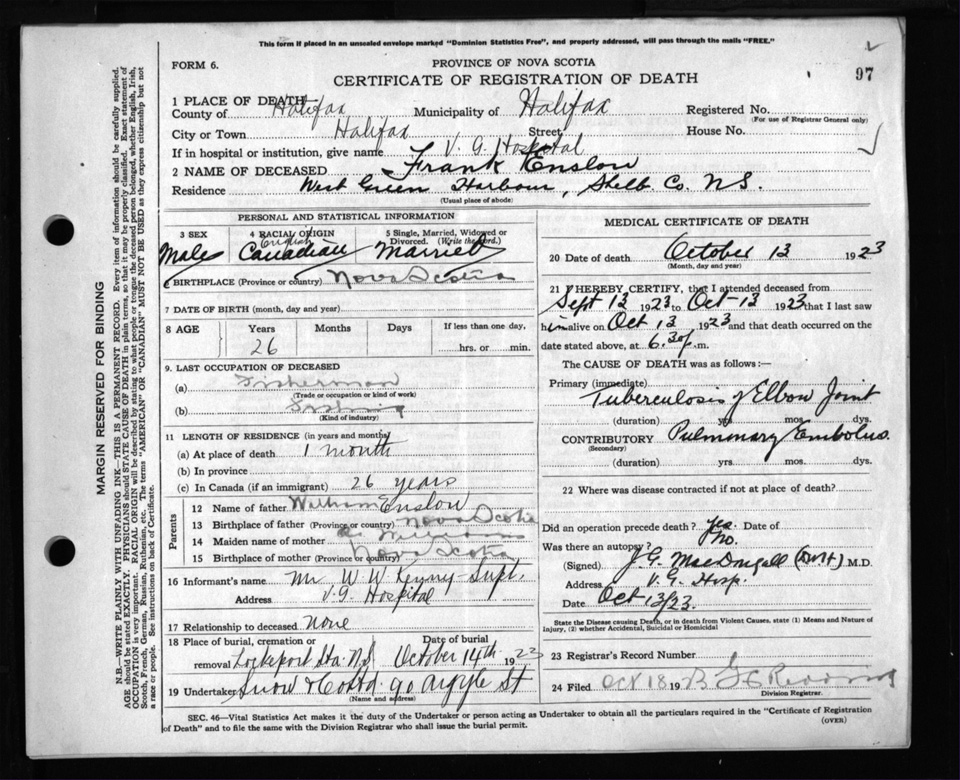 This form if placed in an unsealed envelope marked "Dominion Statistics Free", and properly addressed, will pass through the mails "FREE."
FORM 6.
PROVINCE OF NOVA SCOTIA
97
CERTIFICATE OF REGISTRATION OF DEATH
1 PLACE OF DEATH
County of Halifax Municipality of Halifax Registered No.
(For use of Registrar General only)
City or Town Halifax Street House No.
If in hospital or institution, give name V. G. Hospital
2 NAME OF DECEASED Frank Enslow
Residence West Green Harbour, Shelb. Co. N.S.
(Usual place of abode)
PERSONAL AND STATISTICAL INFORMATION
3 SEX 4 RACIAL ORIGIN 5 Single, Married, Widowed or Divorced. (Write the word.)
English
Male Canadian Married
BIRTHPLACE (Province or country) Nova Scotia
7 DATE OF BIRTH (month, day and year)
8 AGE Years Months Days If less than one day,
26 hrs. or min.
9. LAST OCCUPATION OF DECEASED
(a) Fisherman
(Trade or occupation or kind of work)
(b) Fishing
(Kind of industry)
11 LENGTH OF RESIDENCE (in years and months)
(a) At place of death 1 month
(b) In province
(c) In Canada (if an immigrant) 26 years
Parents
12 Name of father William Enslow
13 Birthplace of father (Province or country) Nova Scotia
14 Maiden name of mother Williams
15 Birthplace of mother (Province or country) Nova Scotia
16 Informant's name Mr W. W. Kenny - Supt.
Address V. G. Hospital
17 Relationship to deceased None
18 Place of burial, cremation or removal Lockeport Sta. N.S. Date of burial October 14th 1923
19 Undertaker Snow & Co Ltd 90 Argyle St
(Name and address)
MEDICAL CERTIFICATE OF DEATH
20 Date of death October 13 1923
(Month, day and year)
21 I HEREBY CERTIFY, that I attended deceased from
Sept 13 1923 to Oct-13 1923 that I last saw
him alive on Oct 13 1923 and that death occurred on
date stated above, at 6.30 p.m.
The CAUSE OF DEATH was as follows:—
Primary (immediate)
Tuberculosis of Elbow Joint
(duration) yrs mos. dys.
CONTRIBUTORY Pulmonary Embolus.
(Secondary)
(duration) yrs. mos. dys.
22 Where was disease contracted if not at place of death?
Did an operation precede death? Yes. Date of
Was there an autopsy? No.
(Signed) J. G. MacDougall M.D.
Address V. G. Hosp.
Date Oct-13/23.
State the Disease causing Death, or in death from Violent Causes, state (1) Means and Nature of Injury, (2) whether Accidental, Suicidal or Homicidal
23 Registrar's Record Number
24 Filed Oct 18 19
Division Registrar.
SEC. 46—Vital Statistics Act makes it the duty of the Undertaker or person acting as Undertaker to obtain all the particulars required in the "Certificate of Registration
of Death" and to file the same with the Division Registrar who shall issue the burial permit.
(OVER)
MARGIN RESERVED FOR BINDING
N.B.—WRITE PLAINLY WITH UNFADING INK—THIS IS A PERMANENT RECORD. Every item of information should be carefully supplied.
AGE should be stated EXACTLY. PHYSICIANS should STATE CAUSE OF DEATH in plain terms, so that it may be properly classified. Exact statement of
OCCUPATION is very important. RACIAL ORIGIN will be described by stating to what people or tongue the deceased person belonged, whether English, Irish,
Scotch, French, German, Russian, Ruthenian, etc. The terms "AMERICAN" OR "CANADIAN" MUST NOT BE USED as they express citizenship but not
a race or people. See instructions on back of Certificate.